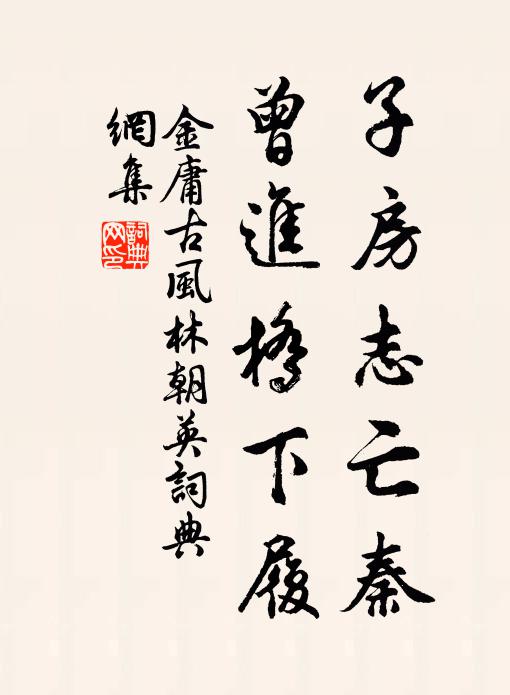 子房志亡秦
曾進橋下履
金庸古風林朝英詞典
網集
詞典
网印